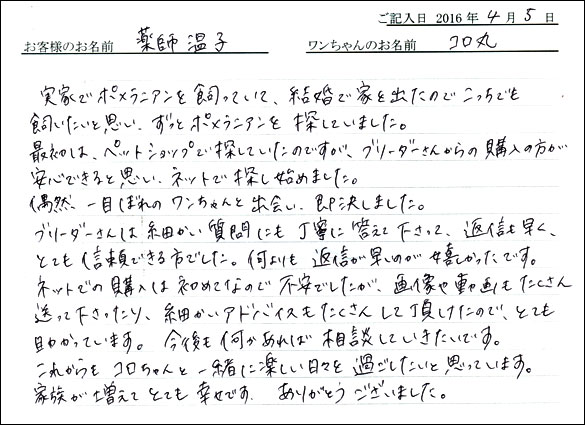 ご記入日 2016年 4月 5日
お客様のお名前 薬師 温子 ワンちゃんのお名前 コロ丸
実家でポメラニアンを飼っていて、結婚で家を出たのでこっちでも
飼いたいと思い、ずっとポメラニアンを探していました。
最初は、ペットショップで探していたのですが、ブリーダーさんからの購入の方が
安心できると思い、ネットで探し始めました。
偶然、一目ぼれのワンちゃんと出会い、即決しました。
ブリーダーさんは細かい質問にも丁寧に答えて下さって、返信も早く、
とても信頼できる方でした。何よりも返信が早いのが嬉しかったです。
ネットでの購入は初めてなので不安でしたが、画像や動画もたくさん
送って下さったり、細かいアドバイスもたくさんして頂けたので、とても
助かっています。今後も何かあれば相談していきたいです。
これからもコロちゃんと一緒に楽しい日々を過ごしたいと思っています。
家族が増えてとても幸せです。ありがとうございました。